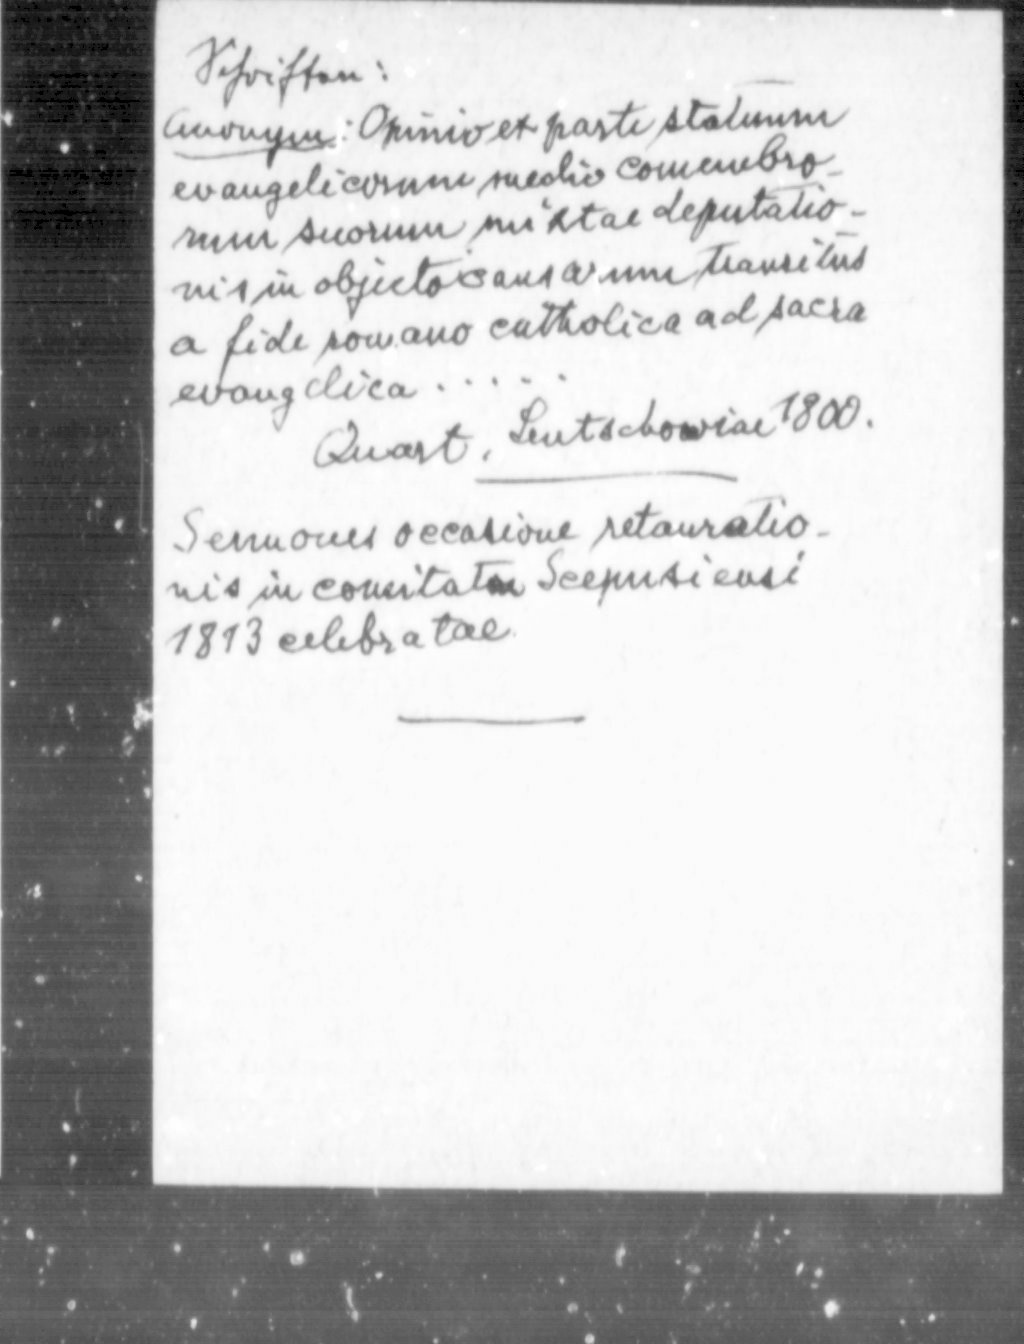 Schriften:
Anonym: Opinio ex parte statuum
evangelicorum medio comembro-
rum suorum mixtae deputatio-
nis in objecto causarum transitus
a fide romano catholica ad sacra
evangelica . . . . .
Quart, Leutschowiae 1800.
Sermones occasione retauratio-
nis in comitatu Scepusiensi
1813 celebratae.